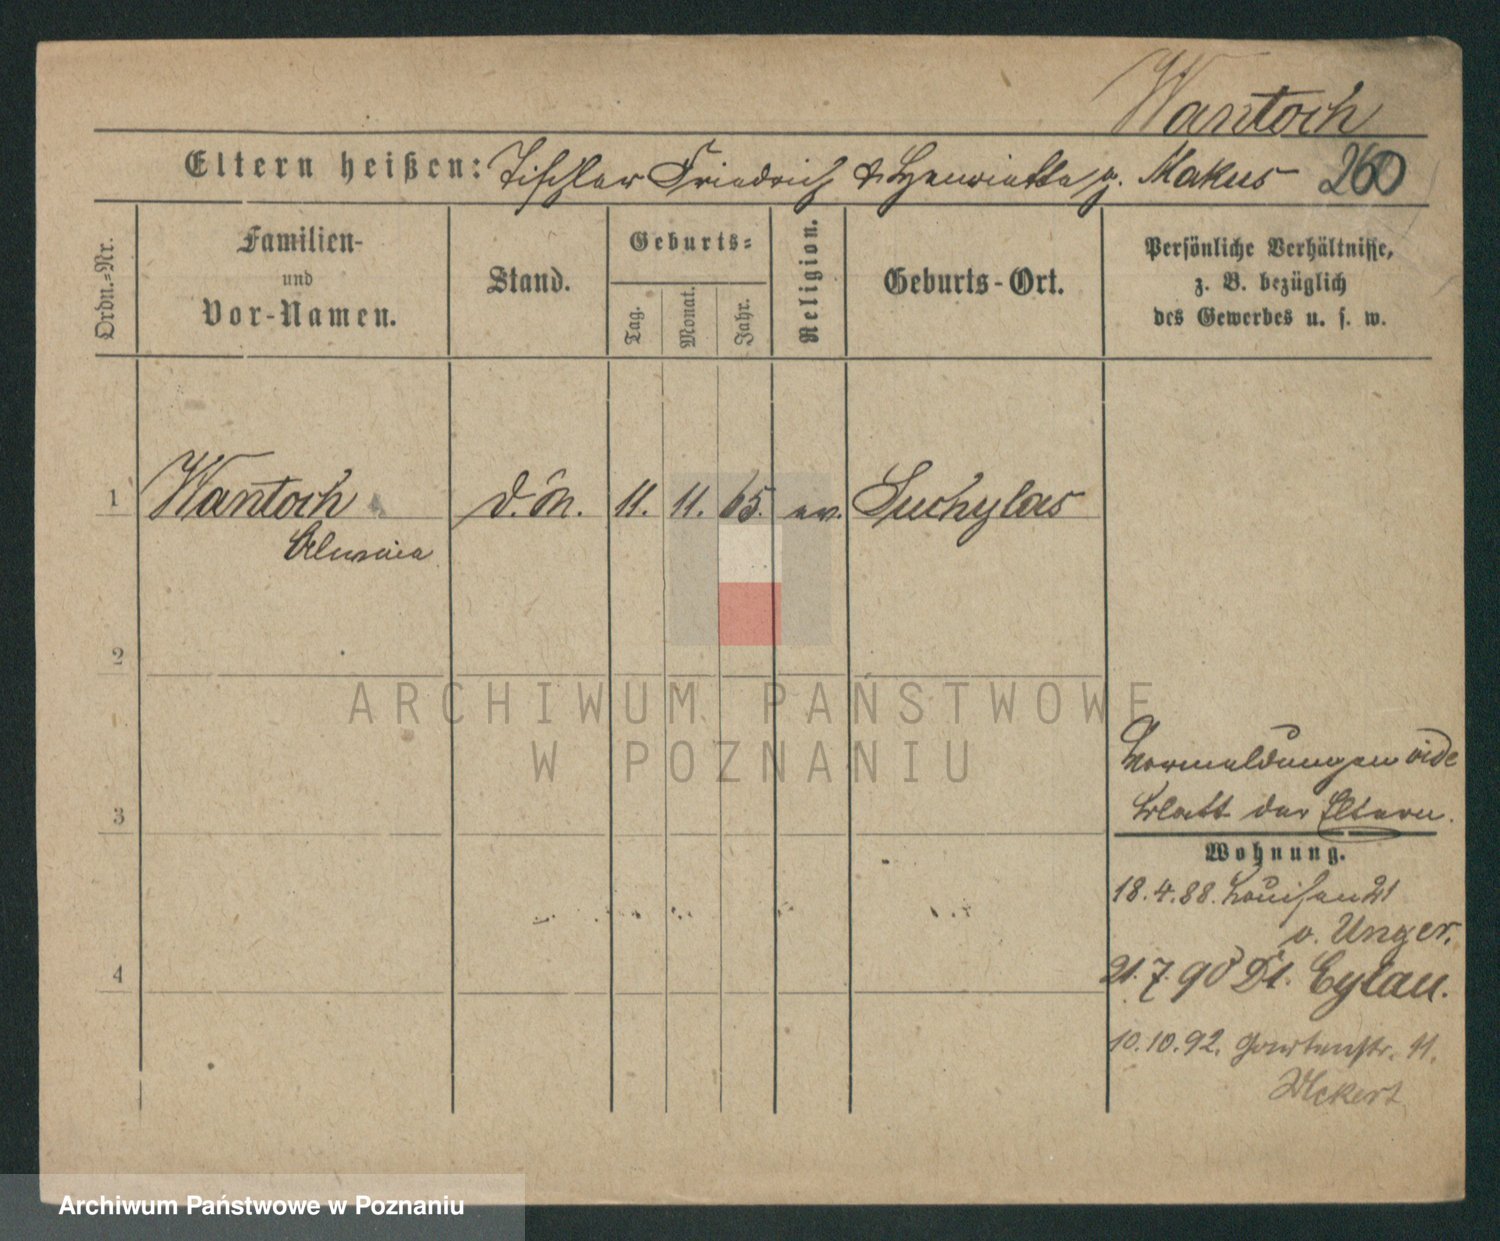 Wantoch
Eltern heißen: Tischler Friedrich & Henriette g. Makus 260
Ordn.-Nr.
Familien-
und
Vor-Namen.
Stand.
Geburts:
Tag.
Monat.
Jahr.
Religion.
Geburts-Ort.
Persönliche Verhältnisse,
z. B. bezüglich
des Gewerbes u. s. w.
1 Wantoch d. M. 11. 11. 65. ev. Suchylas
2
ARCHIWUM PAŃSTWOWE
W POZNANIU
3
4
Vormeldungen vide
Blatt der Eltern.
Wohnung.
18.4.88. Louisen 21
b. Unger.
21.7.90 Dt. Eylau.
10.10.92. Gartenstr. 11.
Archiwum Państwowe w Poznaniu